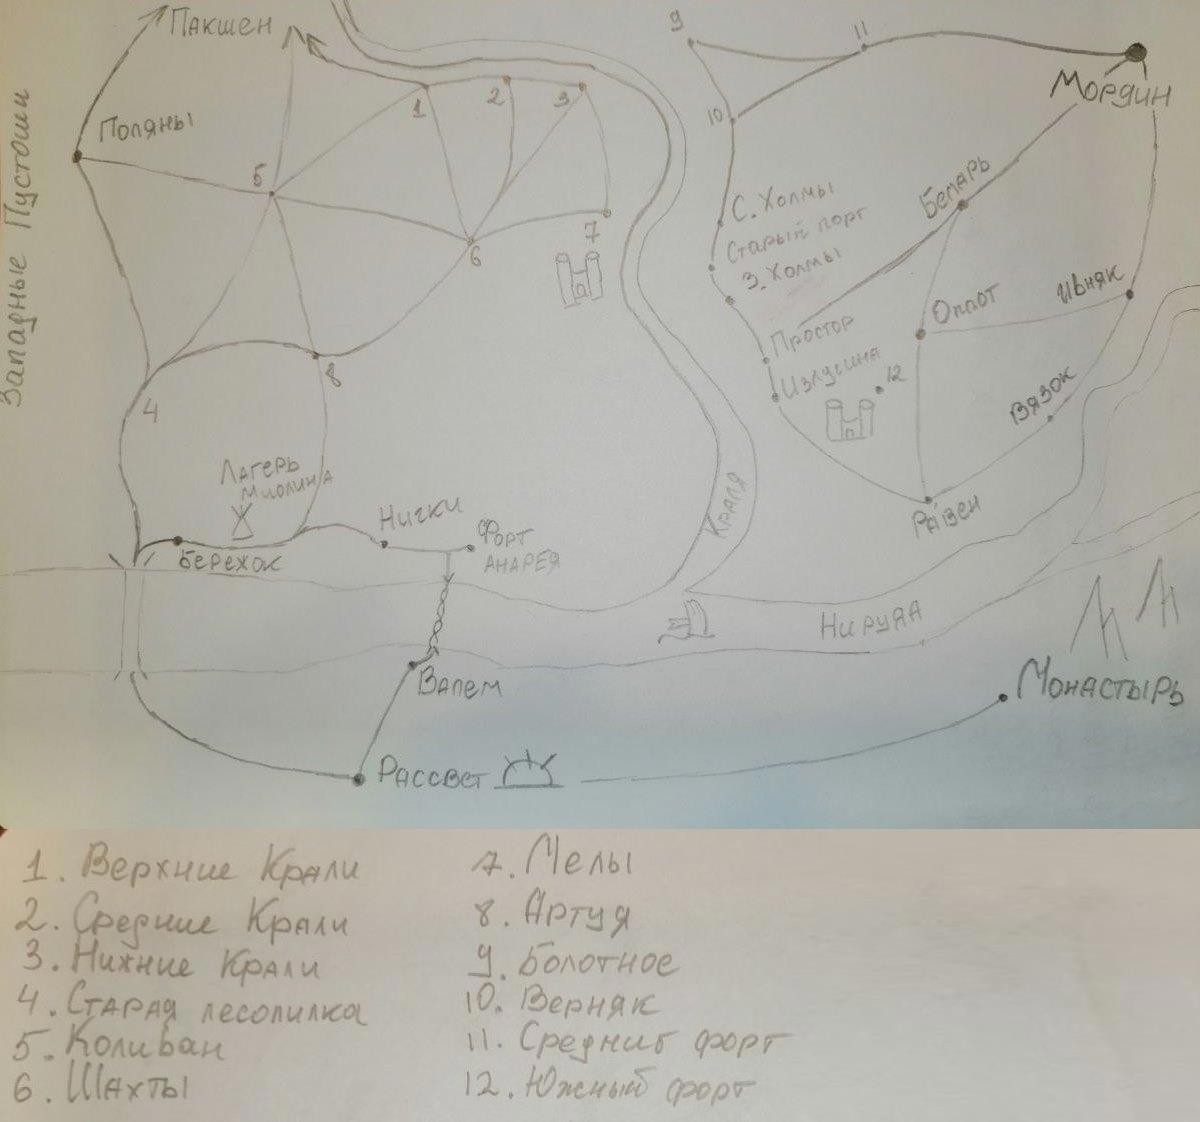 Пакшен
Западные Пустоши
Поляны
1
2
3
5
6
7
4
8
9
11
10
Мордин
С. Холмы
Старый порт
З. Холмы
Беларь
Простор
Излучина
12
Оплот
Ивняк
Вязок
Равен
Лагерь
Миолина
Бережок
Нички
Форт
Андрея
Краля
Нируда
Валем
Рассвет
Монастырь
1. Верхние Крали
2. Средние Крали
3. Нижние Крали
4. Старая лесопилка
5. Коливан
6. Шахты
7. Мелы
8. Артуя
9. Болотное
10. Верняк
11. Средний форт
12. Южный форт